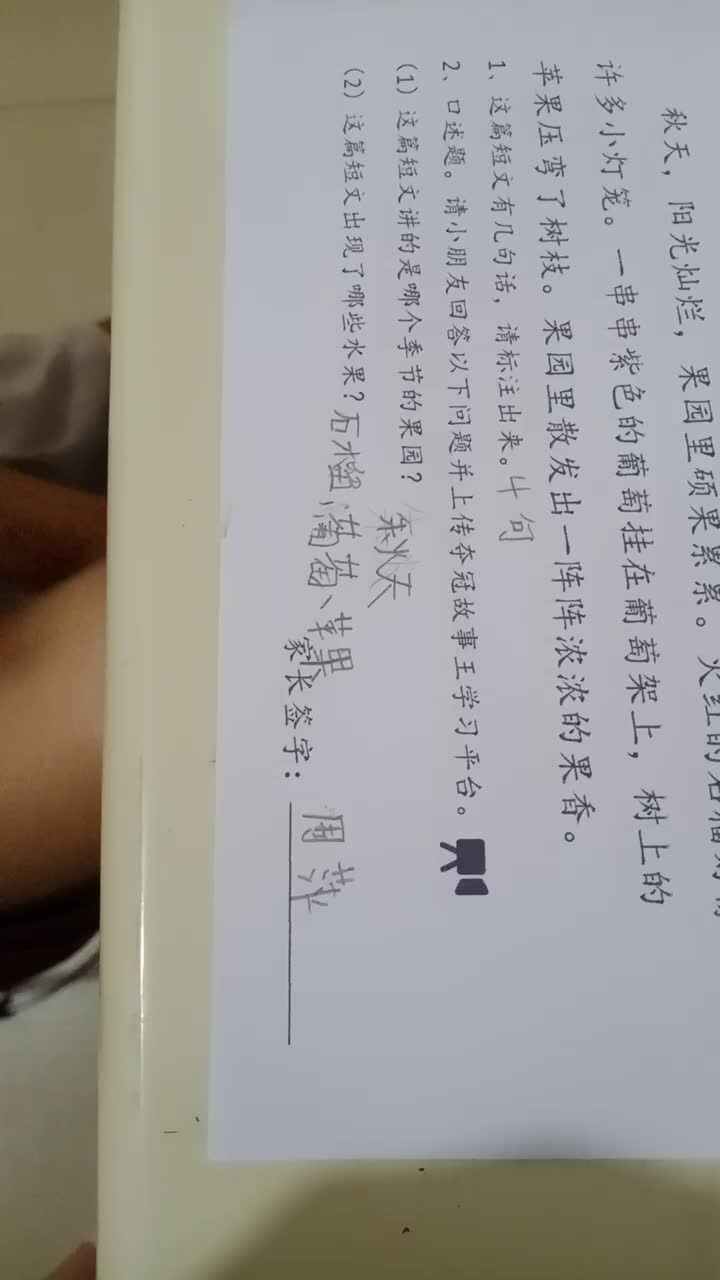 秋天，阳光灿烂，果园里硕果累累。火红的石榴
许多小灯笼。一串串紫色的葡萄挂在葡萄架上，树上的
苹果压弯了树枝。果园里散发出一阵阵浓浓的果香。
1、这篇短文有几句话，请标注出来。4句
2、口述题。请小朋友回答以下问题并上传夺冠故事王学习平台。
(1) 这篇短文讲的是哪个季节的果园？ 秋天
(2) 这篇短文出现了哪些水果？石榴、葡萄、苹果
家长签字： 周萍